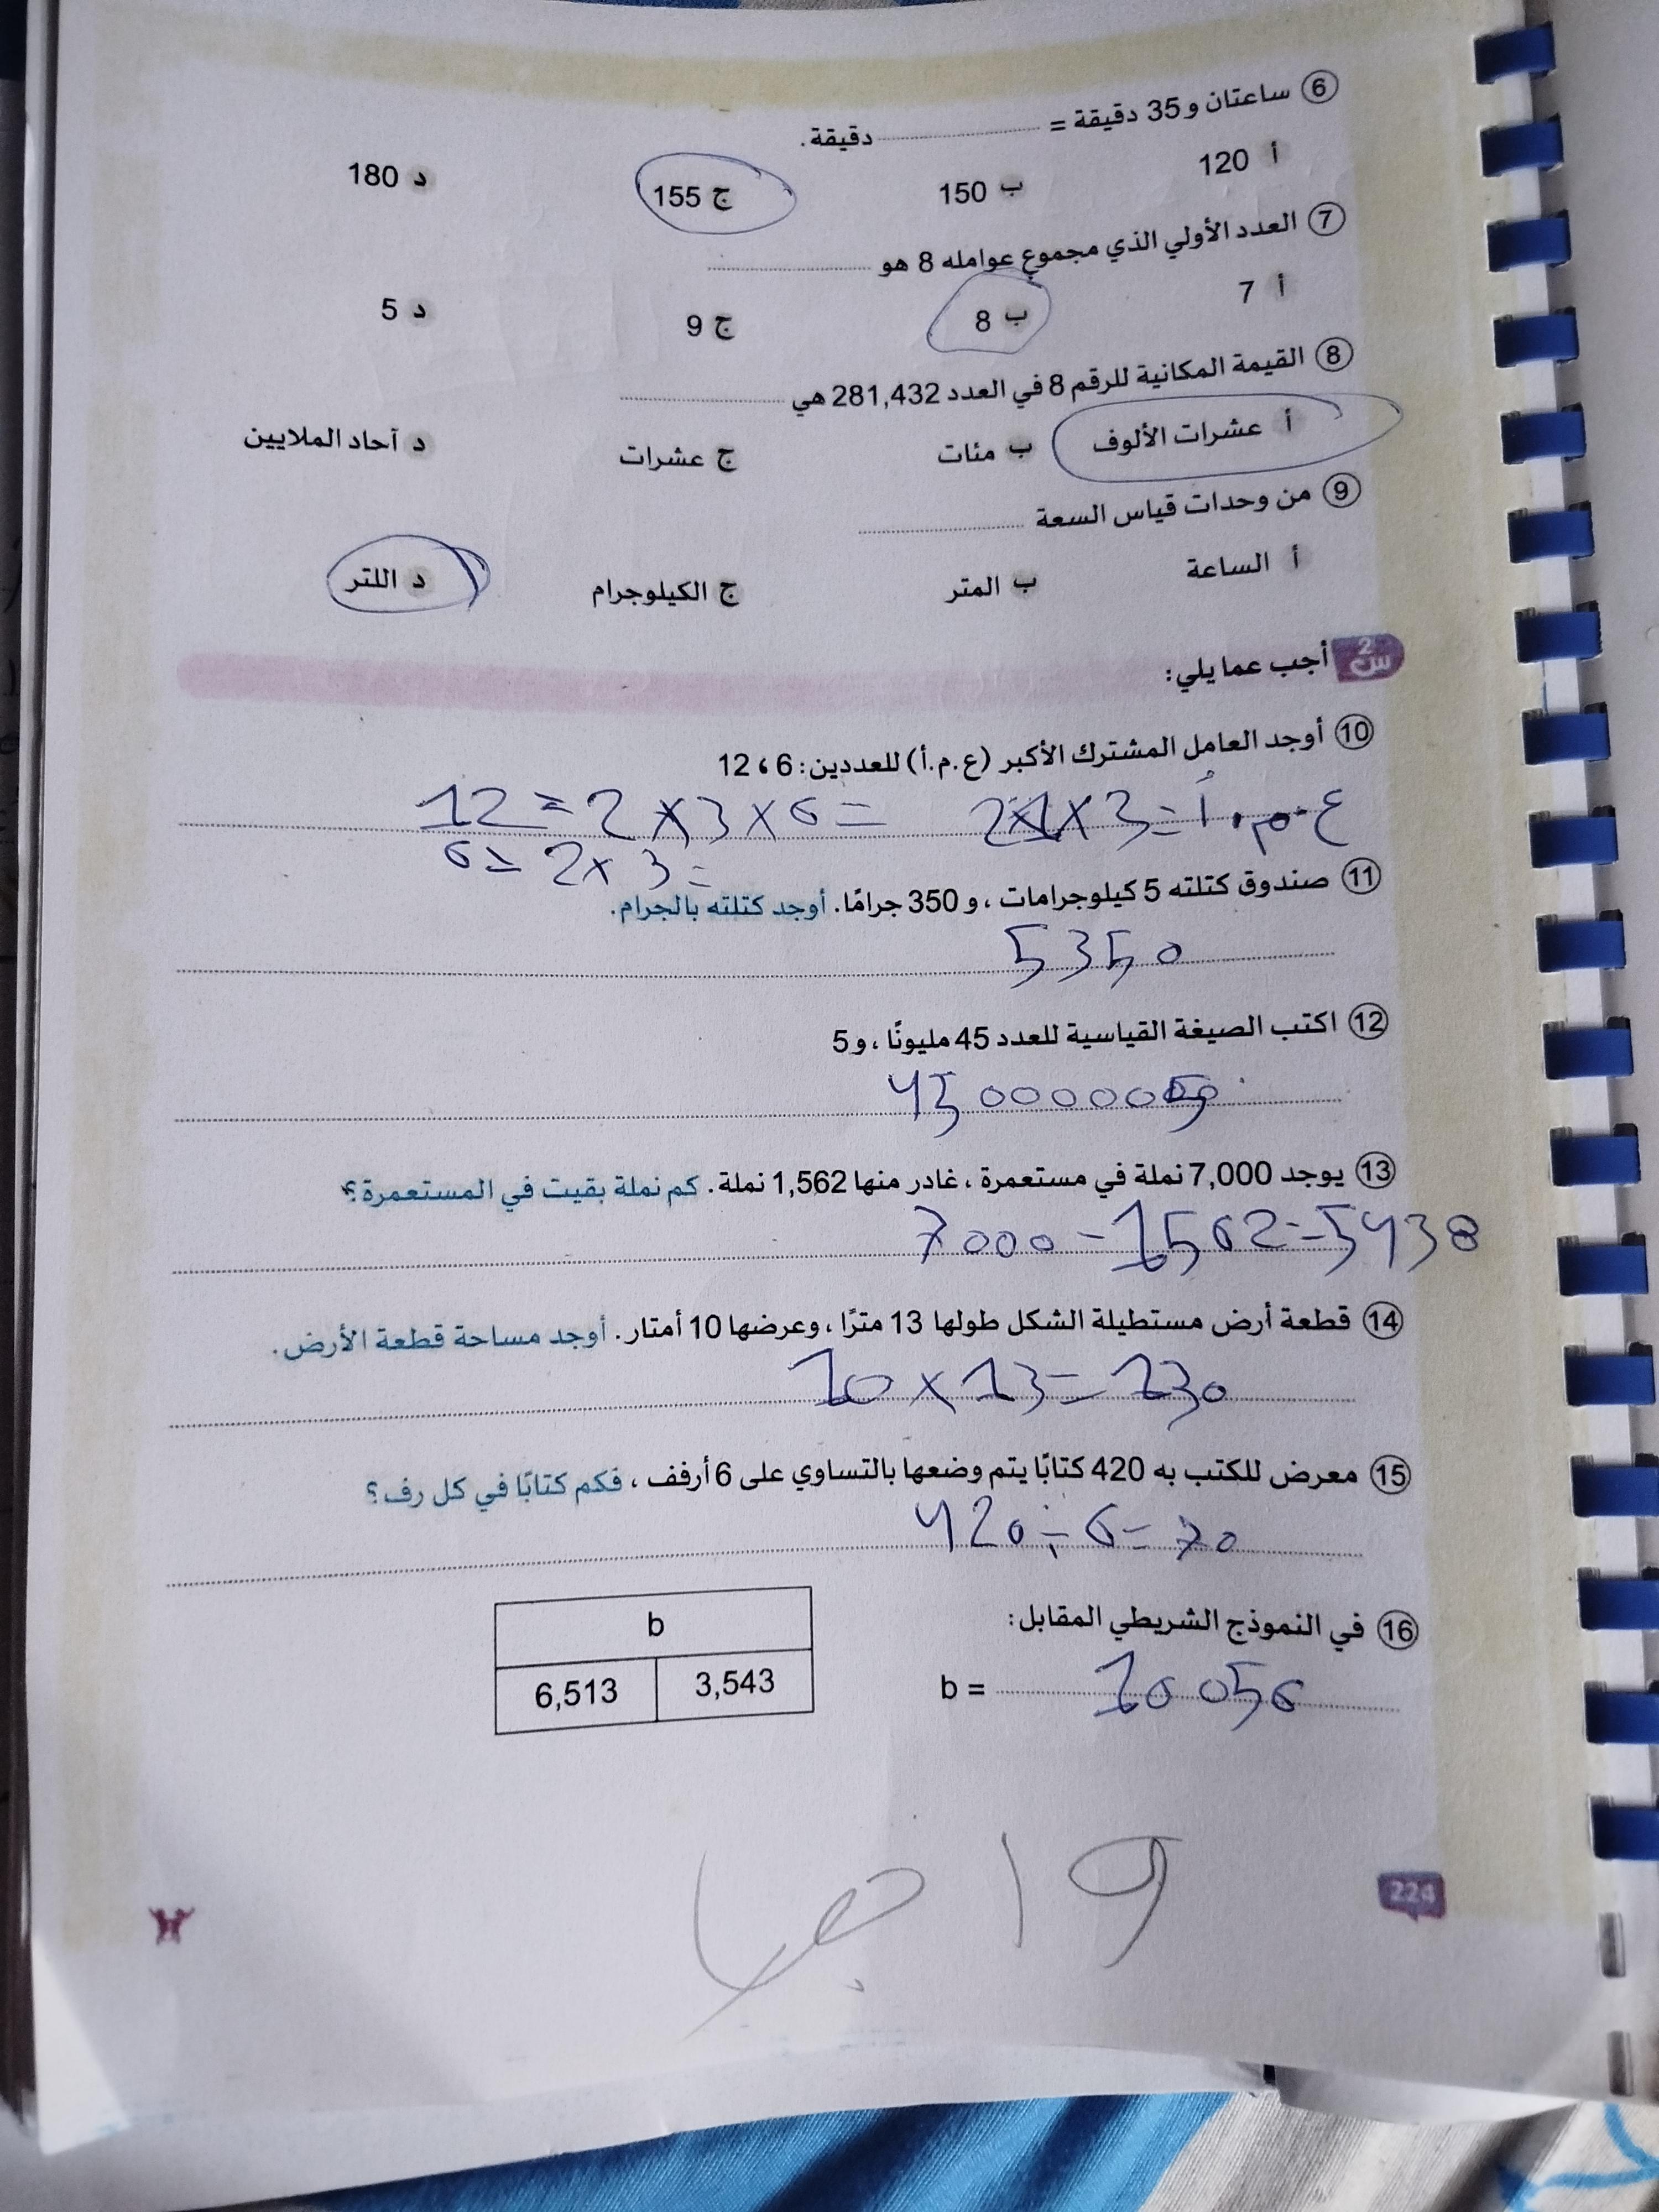 6 ساعتان و 35 دقيقة = ........ دقيقة.
أ 120 ب 150 ج 155 د 180
7 العدد الأولي الذي مجموع عوامله 8 هو ........
أ 7 ب 8 ج 9 د 5
8 القيمة المكانية للرقم 8 في العدد 281,432 هي ........
أ عشرات الألوف ب مئات ج عشرات د آحاد الملايين
9 من وحدات قياس السعة ........
أ الساعة ب المتر ج الكيلوجرام د اللتر
س2 أجب عما يلي:
10 أوجد العامل المشترك الأكبر (ع.م.أ) للعددين: 6 ، 12
12 = 2 × 3 × 6 = ع.م.أ = 3 ×
6 = 2 × 3 =
11 صندوق كتلته 5 كيلوجرامات ، و 350 جرامًا. أوجد كتلته بالجرام.
5350
12 اكتب الصيغة القياسية للعدد 45 مليونًا ، و 5
13 يوجد 7,000 نملة في مستعمرة ، غادر منها 1,562 نملة. كم نملة بقيت في المستعمرة؟
7000 - 1562 = 5438
14 قطعة أرض مستطيلة الشكل طولها 13 مترًا ، وعرضها 10 أمتار. أوجد مساحة قطعة الأرض.
10 × 13 = 130
15 معرض للكتب به 420 كتابًا يتم وضعها بالتساوي على 6 أرفف ، فكم كتابًا في كل رف؟
420 ÷ 6 = 70
16 في النموذج الشريطي المقابل:
b
6,513 3,543
b = 10056
224